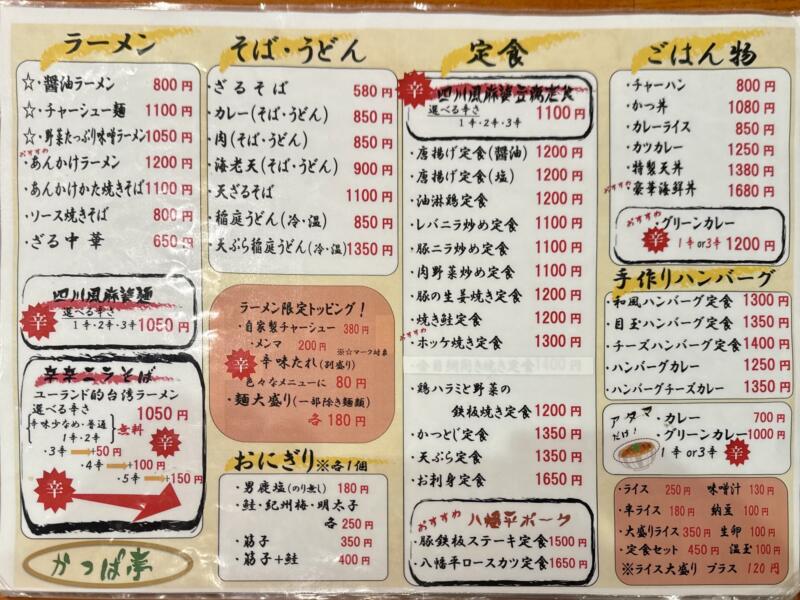 ラーメン
☆・醤油ラーメン 800円
☆・チャーシュー麺 1100円
☆・野菜たっぷり味噌ラーメン 1050円
おすすめ
・あんかけラーメン 1200円
・あんかけかた焼きそば 1100円
・ソース焼きそば 800円
・ざる中華 650円
四川風麻婆麺
選べる辛さ
辛 1辛・2辛・3辛 1050円
辛辛ニラそば
ユーランド的台湾ラーメン
選べる辛さ 1050円
辛味少なめ・普通
1辛・2辛
無料
辛
・3辛 +50円
・4辛 +100円
・5辛 +150円
辛
辛
かっぱ亭
そば・うどん
・ざるそば 580円
・カレー(そば・うどん) 850円
・肉(そば・うどん) 850円
・海老天(そば・うどん) 900円
・天ざるそば 1100円
・稲庭うどん(冷・温) 850円
・天ぷら稲庭うどん(冷・温) 1350円
ラーメン限定トッピング!
・自家製チャーシュー 380円
・メンマ 200円
※☆マーク対象
辛 辛味たれ(別盛り)
色々なメニューに 80円
・麺大盛り(一部除き麺類)
各180円
おにぎり ※各1個
・男鹿塩(のり無し) 180円
・鮭・紀州梅・明太子
各250円
・筋子 350円
・筋子+鮭 400円
定食
辛 四川風麻婆豆腐定食
選べる辛さ
1辛・2辛・3辛 1100円
・唐揚げ定食(醤油) 1200円
・唐揚げ定食(塩) 1200円
・油淋鶏定食 1200円
・レバニラ炒め定食 1100円
・豚ニラ炒め定食 1100円
・肉野菜炒め定食 1100円
・豚の生姜焼き定食 1200円
・焼き鮭定食 1200円
おすすめ
・ホッケ焼き定食 1300円
・鶏ハラミと野菜の
鉄板焼き定食 1200円
・かつとじ定食 1350円
・天ぷら定食 1350円
・お刺身定食 1650円
おすすめ 八幡平ポーク
・豚鉄板ステーキ定食 1500円
・八幡平ロースカツ定食 1650円
ごはん物
・チャーハン 800円
・かつ丼 1080円
・カレーライス 850円
・カツカレー 1250円
・特製天丼 1380円
おすすめ
・豪華海鮮丼 1680円
おすすめ
・グリーンカレー
辛 1辛or3辛 1200円
手作りハンバーグ
・和風ハンバーグ定食 1300円
・目玉ハンバーグ定食 1350円
・チーズハンバーグ定食 1400円
・ハンバーグカレー 1250円
・ハンバーグチーズカレー 1350円
アタマだけ!
・カレー 700円
・グリーンカレー 1000円
1辛or3辛 辛
・ライス 250円 味噌汁 130円
・半ライス 180円 納豆 100円
・大盛りライス 350円 生卵 100円
・定食セット 450円 温玉 100円
※ライス大盛り プラス 120円